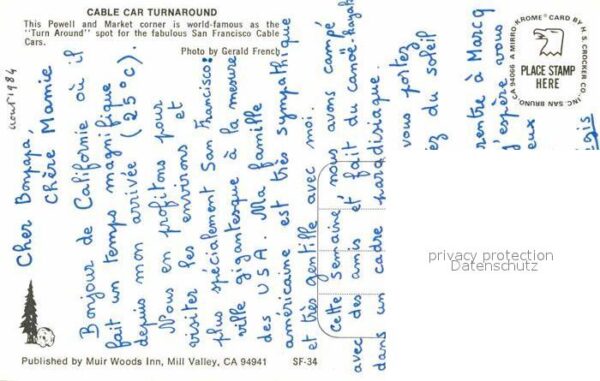 CABLE CAR TURNAROUND
This Powell and Market corner is world-famous as the
"Turn Around" spot for the fabulous San Francisco Cable
Cars.
Photo by Gerald French
août 1984
Cher Bonpapa,
chère Mamie
Bonjour de Californie où il
fait un temps magnifique
depuis mon arrivée (25°C).
Nous en profitons pour
visiter les environs et
plus spécialement San Francisco:
ville gigantesque à la mesure
des USA. Ma famille
américaine est très sympathique
et très gentille avec moi.
cette semaine nous avons campé
avec des amis et fait du canoë-kayak
dans un cadre paradisiaque.
vous portez
ez du soleil
rentre à Marcq
j'espère vous
eux
égis
A MIRRO-KROME® CARD BY H. S. CROCKER CO., INC. SAN BRUNO, CA 94066
PLACE STAMP
HERE
privacy protection
Datenschutz
Published by Muir Woods Inn, Mill Valley, CA 94941
SF-34